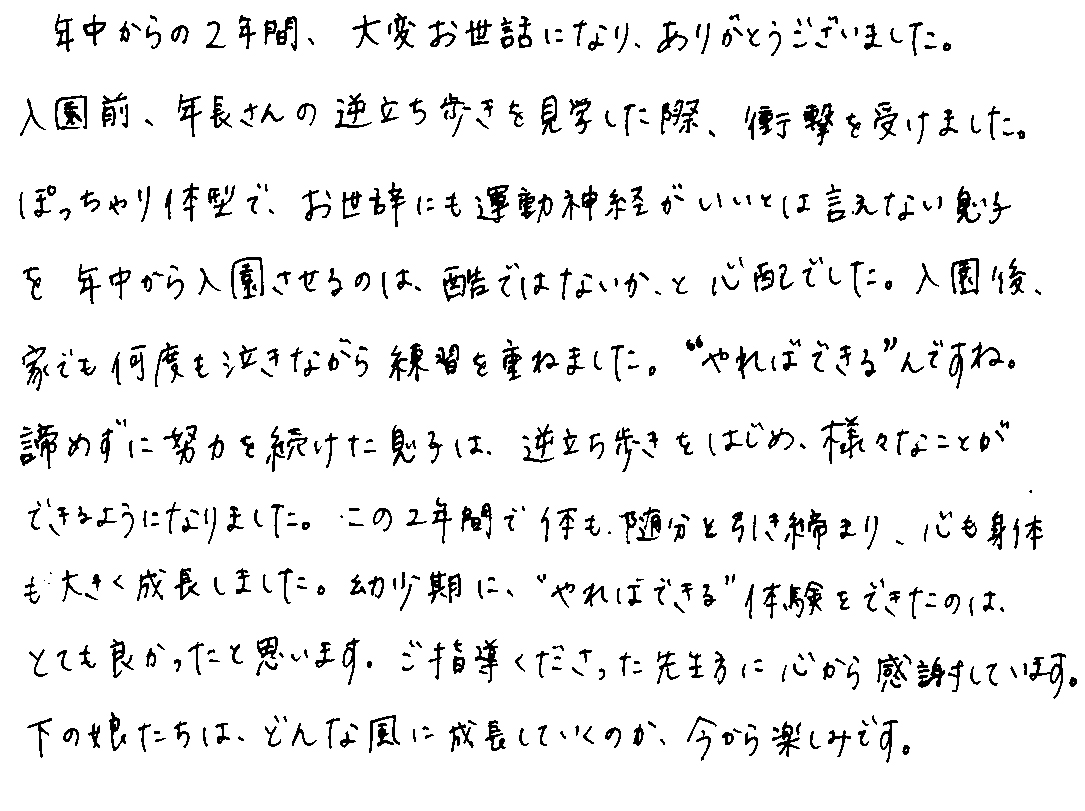 年中からの2年間、大変お世話になり、ありがとうございました。
入園前、年長さんの逆立ち歩きを見学した際、衝撃を受けました。
ぽっちゃり体型で、お世辞にも運動神経がいいとは言えない息子
を年中から入園させるのは、酷ではないか、と心配でした。入園後、
家でも何度も泣きながら練習を重ねました。“やればできる”んですね。
諦めずに努力を続けた息子は、逆立ち歩きをはじめ、様々なことが
できるようになりました。この2年間で体も随分と引き締まり、心も身体
も大きく成長しました。幼少期に、“やればできる”体験をできたのは、
とても良かったと思います。ご指導くださった先生方に心から感謝しています。
下の娘たちは、どんな風に成長していくのか、今から楽しみです。